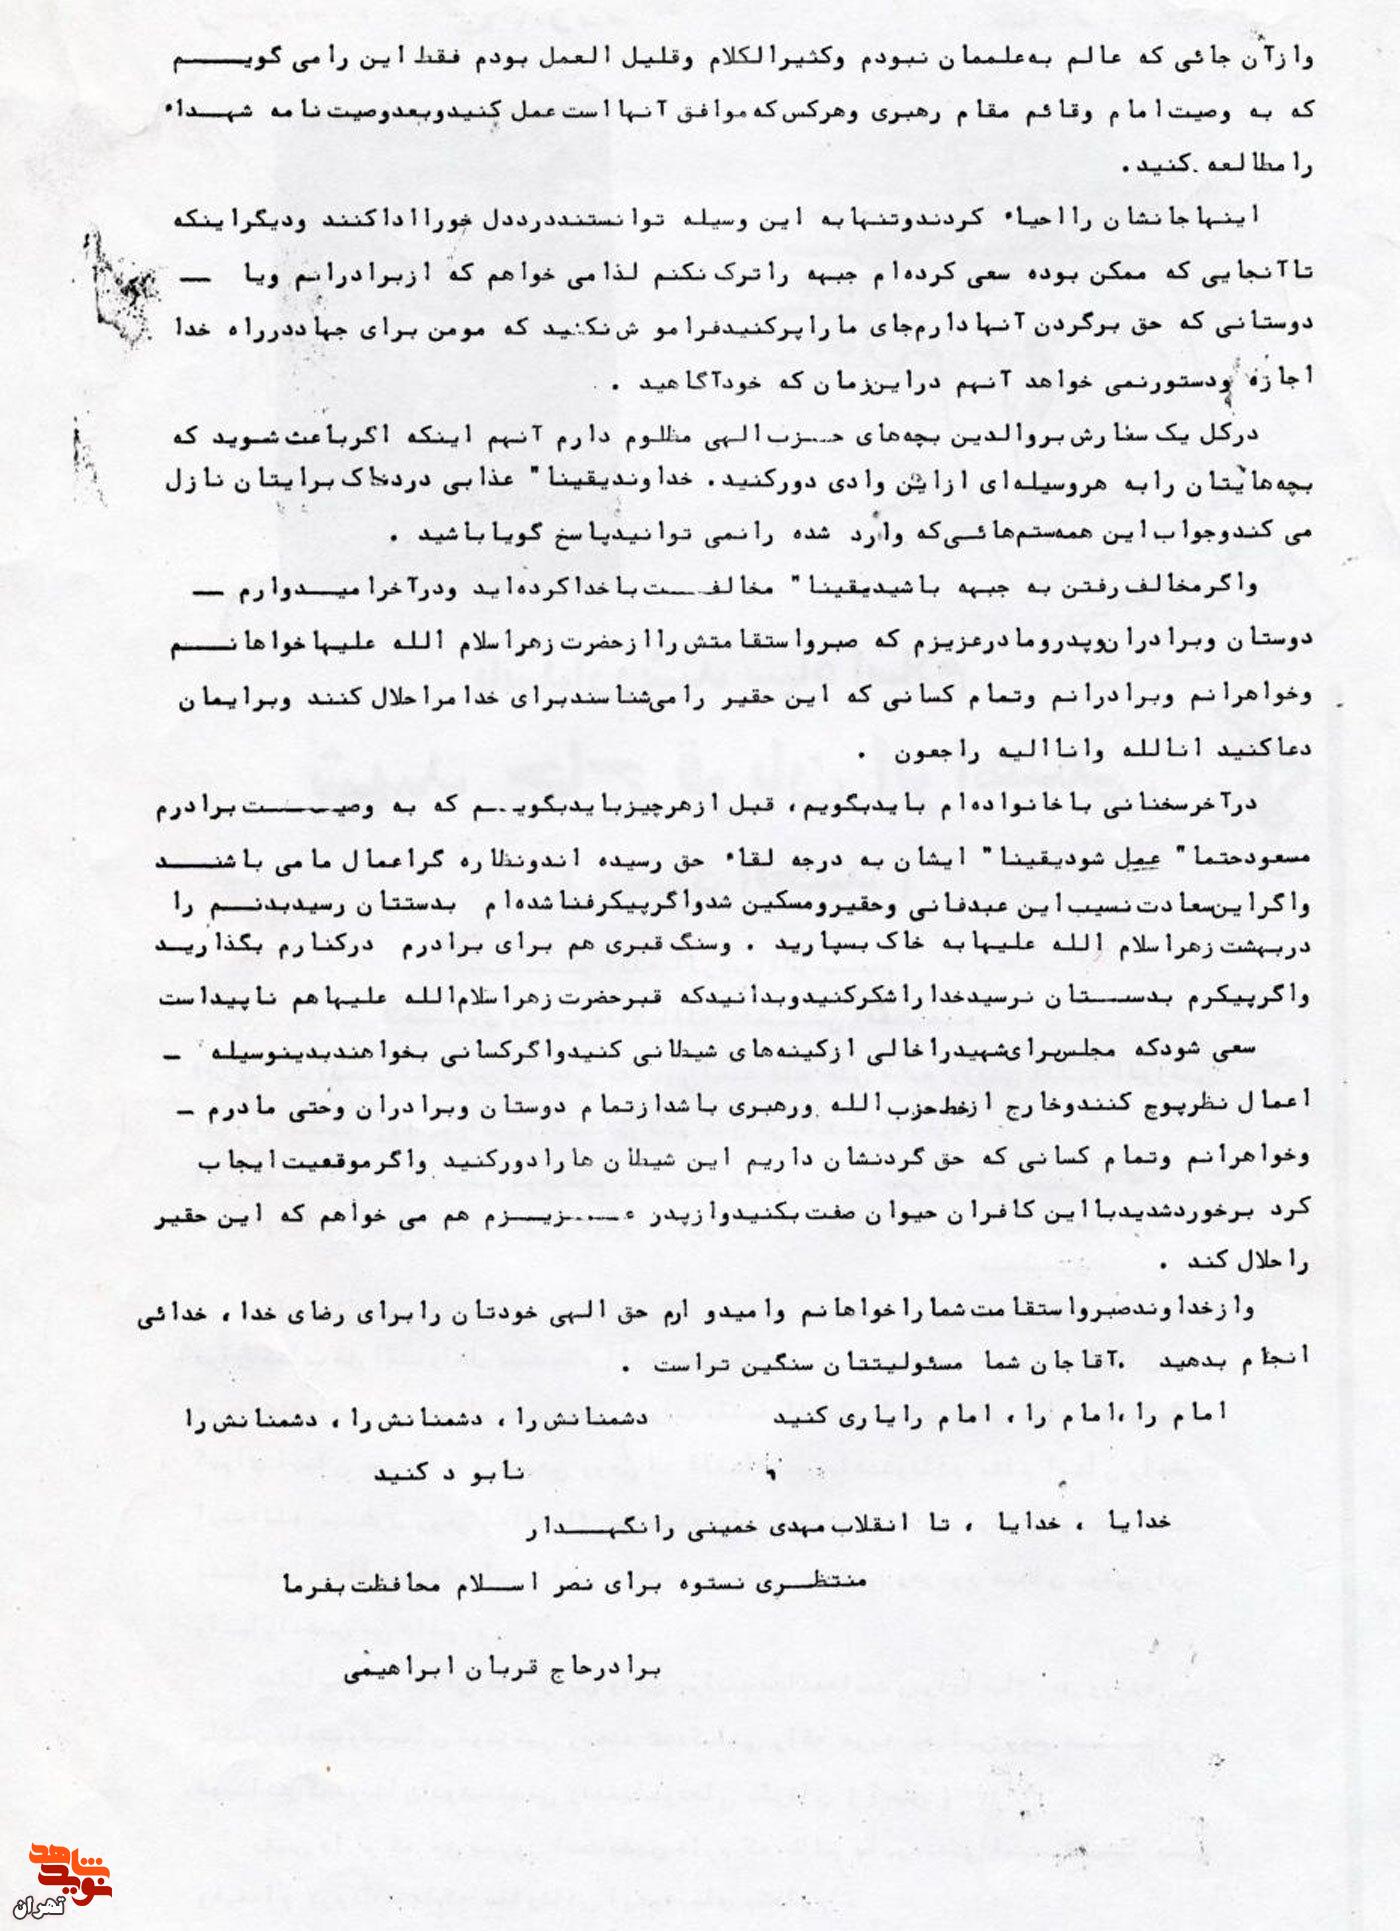 وازآن جائی که عالم به‌علممان نبودم وکثیرالکلام وقلیل العمل بودم فقط این رامی گویــــم
که به وصیت‌امام وقائم مقام رهبری وهرکس‌که‌موافق آنهااست‌عمل کنیدوبعدوصیت‌نامه شهــداء
رامطالعه کنید.
اینهاجانشان رااحیاء کردندوتنهابه این وسیله توانستنددرددل خوراا‌داکنند ودیگراینکه
تاآنجایی که ممکن بوده سعی کرده‌ام جبهه راترک‌نکنم لذامی خواهم که ازبرادرانم ویا ـــ
دوستانی که حق برگردن آنهادارم‌جای ماراپرکنیدفرامو ش‌نکنید که مومن برای جهاددرراه خدا
اجازه ودستورنمی خواهد آنهم دراین‌زمان که خودآگاهید .
درکل یک سفارش‌بروالدین بچه‌های حــزب‌الهی مظلوم دارم آنهم اینکه اگرباعث‌شوید که
بچه‌هایتان رابه هروسیله‌ای ازاین وادی دورکنید. خداوندیقینا" عذابی دردناک‌برایتان نازل
می کندوجواب‌این همه‌ستم‌هائــی‌که وارد شده رانمی توانیدپاسخ گویاباشید .
واگرمخالف‌رفتن به جبهه باشیدیقینا" مخالفـــت‌باخداکرده‌اید ودرآخرامیــدوارم ـــ
دوستان وبرادران‌وپدرومادرعزیزم که صبرواستقامتش راازحضرت‌زهراسلام الله علیهاخواهانــــم
وخواهرانم وبرادرانم وتمام کسانی که این حقیر رامی‌شناسندبرای خدامراحلال کنند وبرایمان
دعاکنید انالله واناالیه راجعون .
درآخرسخنانی باخانواده‌ام بایدبگویم، قبل ازهرچیزبایدبگویــم که به وصیــــت‌برادرم
مسعودحتما" عمل شودیقینا" ایشان به درجه لقاء حق رسیده اندونظاره گراعمال مامی باشنــــد
واگراین‌سعادت‌نسیب‌این عبدفانی وحقیرومسکین شدواگرپیکرفناشده‌ام بدستتان رسیدبدنــم را
دربهشت‌زهراسلام الله علیهابه خاک‌بسپارید . وسنگ‌قبری هم برای برادرم درکنارم بگذاریــد
واگرپیکرم بدســـتان نرسیدخداراشکرکنیدوبدانیدکه قبرحضرت‌زهراسلام‌الله علیهاهم ناپیداست
سعی شودکه مجلس‌برای‌شهیدراخالی ازکینه‌های شیطانی کنیدواگرکسانی بخواهندبدینوسیله ـــ
اعمال نظرپوچ کنندوخارج ازخط‌حزب‌الله ورهبری باشدازتمام دوستان وبرادران وحتی مادرم ـــ
وخواهرانم وتمام کسانی که حق گردنشان داریم این شیطان هارادورکنید واگرموقعیت‌ایجاب
کرد برخوردشدیدبااین کافران حیوان صفت‌بکنیدوازپدر عــزیــزم هم می خواهم که این حقیر
راحلال کند .
وازخداوندصبرواستقامت‌شماراخواهانم وامیدو ارم حق الهی خودتان رابرای رضای خدا، خدائی
انجام بدهید .آقاجان شما مسئولیتتان سنگین تراست .
امام را،امام را، امام رایاری کنید دشمنانش‌را، دشمنانش‌را، دشمنانش‌را
نابو د کنید
خدایا ، خدایا ، تا انقلاب‌مهدی خمینی رانگهــدار
منتظــری نستوه برای نصر اســلام محافظت‌بفرما
برادرحاج قربان ابراهیمی
نوید شاهد
تهران